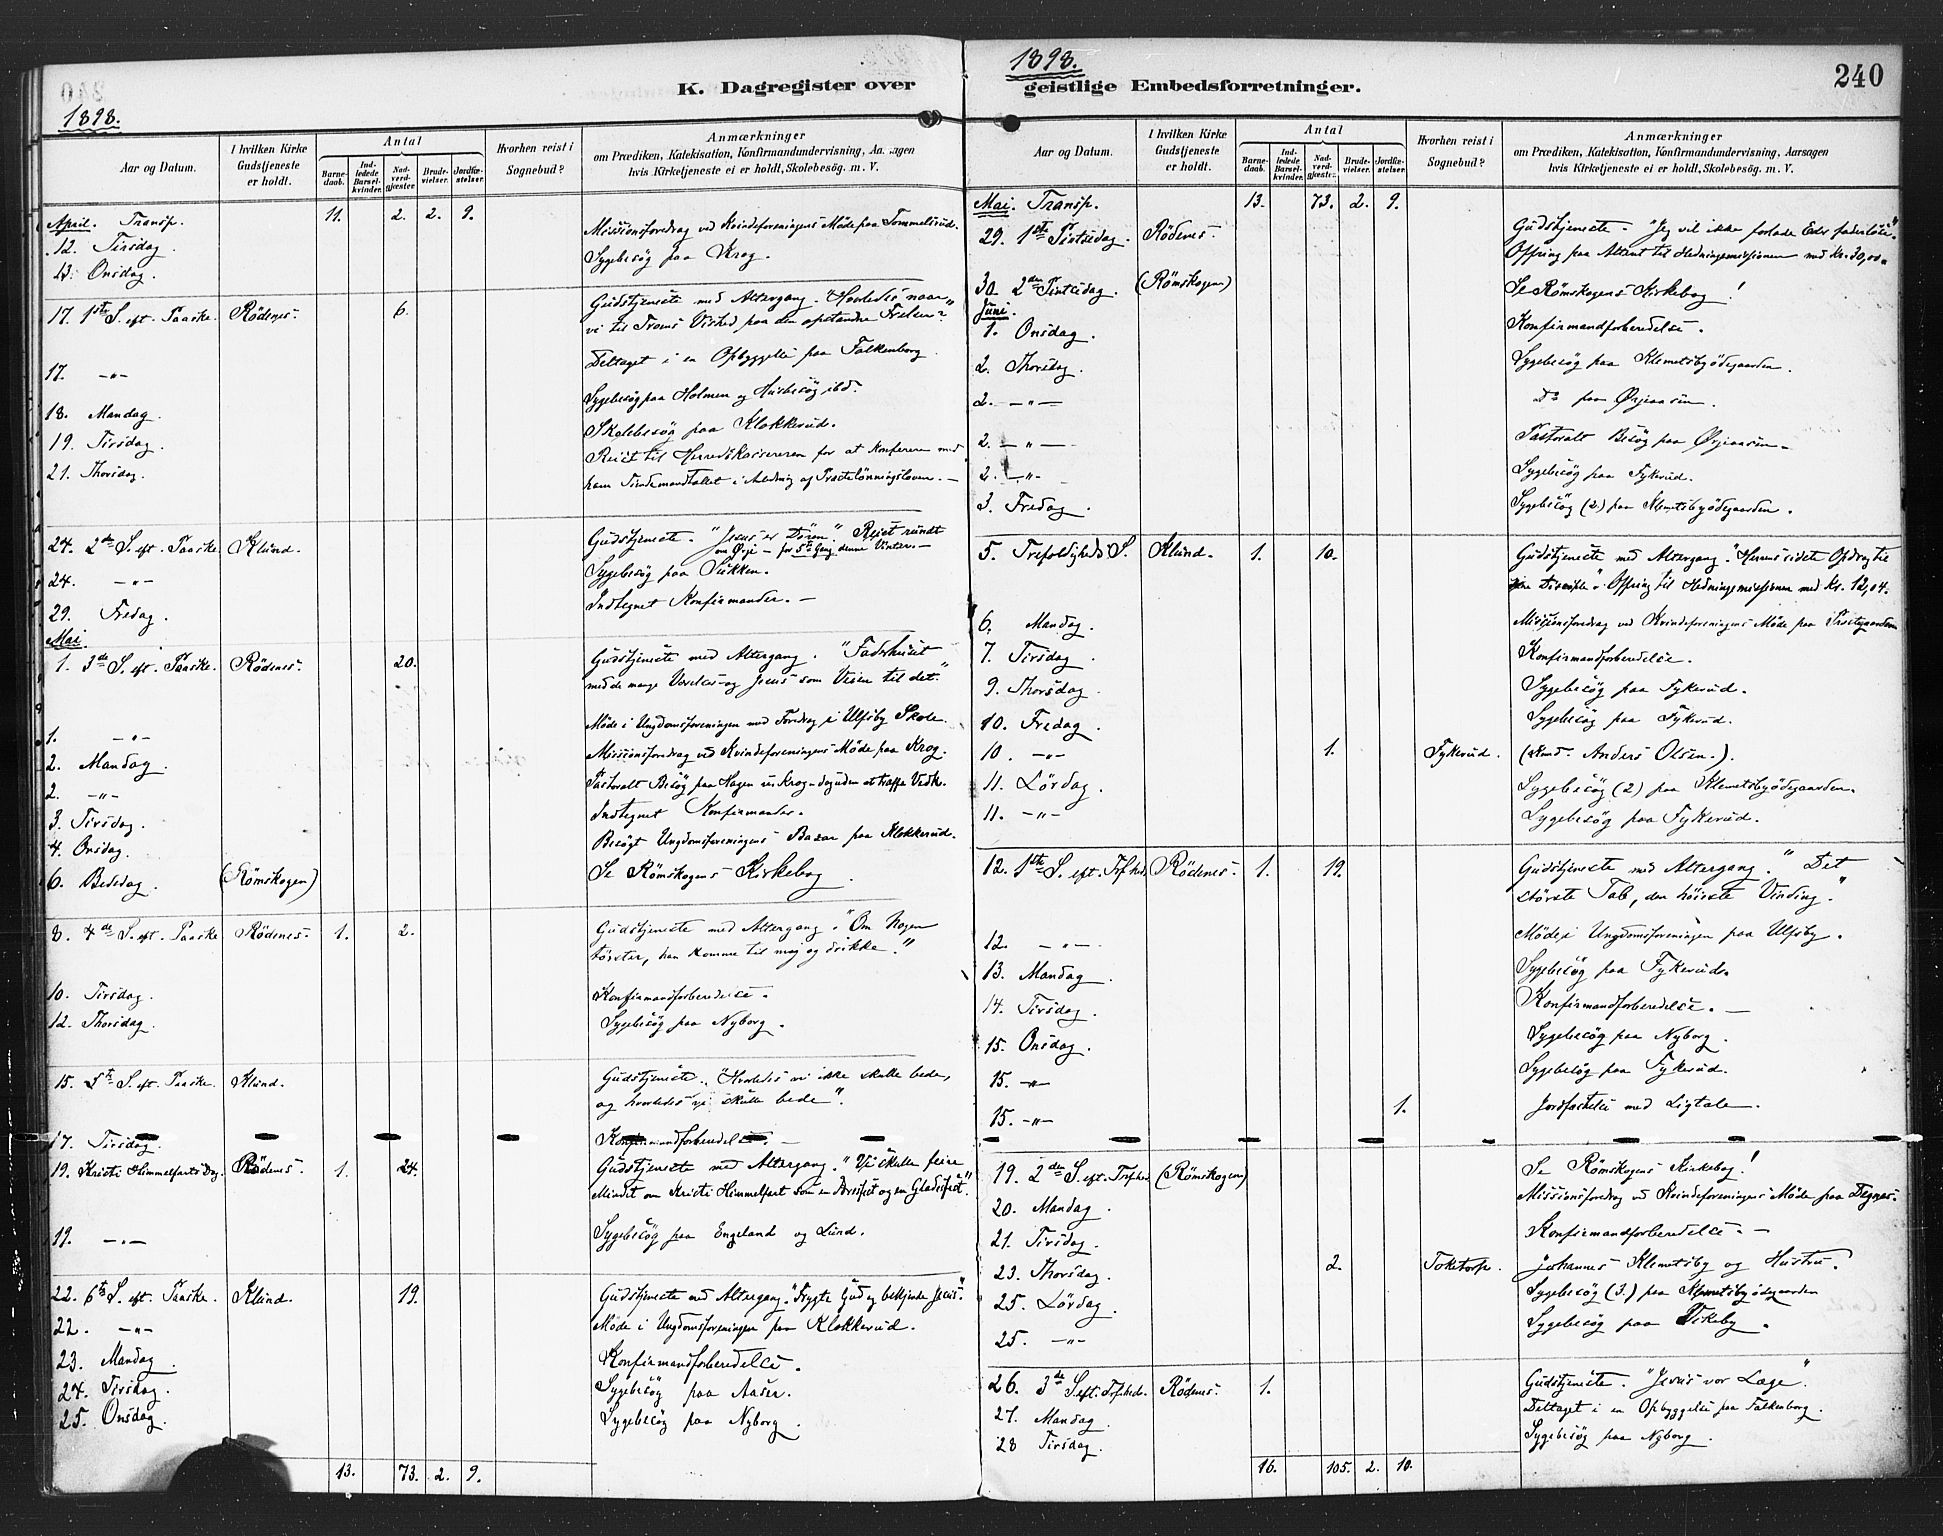 1898.
K. Dagregister over
1898.
Aar og Datum.
I hvilken Kirke Gudstjeneste er holdt.
Antal
Barnedaab.
Indledede Barselkvinder.
Nadverdgjæster.
Brudevielser.
Jordfæstelser.
Hvorhen reist i Sognebud?
Anmærkninger
om Prædiken, Katekisation, Konfirmandundervisning, Aarsagen
hvis Kirketjeneste ei er holdt, Skolebesøg. m. V.
April. Transp. 11. 2. 2. 9.
12. Tirsdag. Missionsforedrag ved Kvindeforeningens Møde paa Tommelsrud.
13. Onsdag. Sygebesög paa Krog.
17. 1ste S. eft. Paaske. Rödenes. 6. Gudstjeneste med Altergang. "Hvorledes naar
vi til Troens Vished paa den opstandne Frelser?"
17. -"- Deltaget i en Opbyggelse paa Falkenborg.
18. Mandag. Sygebesög paa Holmen og Husbesög ibd.
19. Tirsdag. Skolebesög paa Klokkerud.
21. Thorsdag. Reist til Herredskassereren for at konferere med
ham Tiendemandtallet i Anledning af Præstelönningsloven. -
24. 2den S. eft. Paaske. Klund. Gudstjeneste. "Jesus er Dören". Reist rundt
om Ørje - for 5te Gang denne Vinter. -
24. -"- Sygebesög paa Sukken.
29. Fredag. Indtegnet Konfirmander. -
Mai.
1. 3de S. eft. Paaske. Rödenes. 20. Gudstjeneste med Altergang. "Faderhuset
med de mange Værelser og Jesus som Veien til det."
1. -"- Møde i Ungdomsforeningen med Foredrag i Ulfsby Skole.
2. Mandag. Missionsforedrag ved Kvindeforeningens Møde paa Krog.
2. -"- Pastoralt Besög paa Hagen ved Krog - dog uden at træffe Vedk.
3. Tirsdag. Indtegnet Konfirmander.
4. Onsdag. Besögt Ungdomsforeningens Basar paa Klokkerud.
6. Bededag. (Römskogen) Se Römskogens Kirkebog.
8. 4de S. eft. Paaske Rödenes. 1. 2. Gudstjeneste med Altergang. "Om Nogen
törster, han komme til mig og drikke."
10. Tirsdag. Konfirmandforberedelse.
12. Thorsdag. Sygebesög paa Nyborg.
15. 5te S. eft. Paaske. Klund. Gudstjeneste. "Hvorledes vi ikke skulle bede,
og hvorledes vi skulle bede".
17. Tirsdag. Konfirmandforberedelse. -
19. Kristi Himmelfarts Dag. Rödenes. 1. 24. Gudstjeneste med Altergang. "Vi skulle feire
Mindet om Kristi Himmelfart som en Afskedsfest og en Glædesfest."
19. -"- Sygebesög paa Engeland og Lund.
22. 6te S. eft. Paaske. Klund. 19. Gudstjeneste med Altergang. "Frygte Gud og bekjende Jesus".
22. -"- Møde i Ungdomsforeningen paa Klokkerud.
23. Mandag. Konfirmandforberedelse.
24. Tirsdag. Sygebesög paa Aasen.
25. Onsdag. Sygebesög paa Nyborg.
13. 73. 2. 9.
1898.
geistlige Embedsforretninger.
240
Aar og Datum.
I hvilken Kirke Gudstjeneste er holdt.
Antal
Barnedaab.
Indledede Barselkvinder.
Nadverdgjæster.
Brudevielser.
Jordfæstelser.
Hvorhen reist i Sognebud?
Anmærkninger
om Prædiken, Katekisation, Konfirmandundervisning, Aarsagen
hvis Kirketjeneste ei er holdt, Skolebesög. m. V.
Mai. Transp. 13. 73. 2. 9.
29. 1ste Pintsedag. Rödenes. Gudstjeneste. "Jeg vil ikke forlade Eder faderlöse".
Offring paa Alteret til Hedningemissionen med Kr. 30,00.
30. 2den Pintsedag. (Römskogen) Se Römskogens Kirkebog!
Juni.
1. Onsdag. Konfirmandforberedelse.
2. Thorsdag. Sygebesög paa Klemetsbyödegaarden.
2. -"- Do paa Ørjeaasen.
2. -"- Pastoralt Besög paa Ørjeaasen.
2. -"- Sygebesög paa Fykerud.
3. Fredag. Sygebesög (2) paa Klemetsbyödegaarden.
5. Trefoldigheds S. Klund. 1. 10. Gudstjeneste med Altergang. "Herrens sidste Opdrag til
sine Disciple". Offring til Hedningemissionen med Kr. 12,04.
6. Mandag. Missionsforedrag ved Kvindeforeningens Møde paa Præstegaarden
7. Tirsdag. Konfirmandforberedelse.
9. Thorsdag. Sygebesög paa Fykerud.
10. Fredag. Sygebesög paa Fykerud.
10. -"- 1. Fykerud. (Kmd. Anders Olsen.)
11. Lördag. Sygebesög (2) paa Klemetsbyödegaarden.
11. -"- Sygebesög paa Fykerud.
12. 1ste S. eft. Trfhed. Rödenes. 1. 19. Gudstjeneste med Altergang. "Det
störste Tab, den höieste Vinding."
12. -"- Møde i Ungdomsforeningen paa Ulfsby.
13. Mandag. Sygebesög paa Fykerud.
14. Tirsdag. Konfirmandforberedelse. -
15. Onsdag. Sygebesög paa Nyborg.
15. -"- Sygebesög paa Fykerud.
15. -"- 1. Jordfæstelse med Ligtale.
19. 2den S. eft. Trfhed. (Römskogen) Se Römskogens Kirkebog!
20. Mandag. Missionsforedrag ved Kvindeforeningens Møde paa Degnes.
21. Tirsdag. Konfirmandforberedelse. -
23. Thorsdag. 2. Toketorp. Johannes Klemetsby og Hustru.
25. Lördag. Sygebesög (3.) paa Klemetsbyödegaarden
25. -"- Sygebesög paa Vikeby.
26. 3de S. eft. Trfhed. Rödenes. 1. Gudstjeneste. "Jesus vor Læge".
27. Mandag. Deltaget i en Opbyggelse paa Falkenborg.
28 Tirsdag. Sygebesög paa Nyborg.
16. 105. 2. 10.